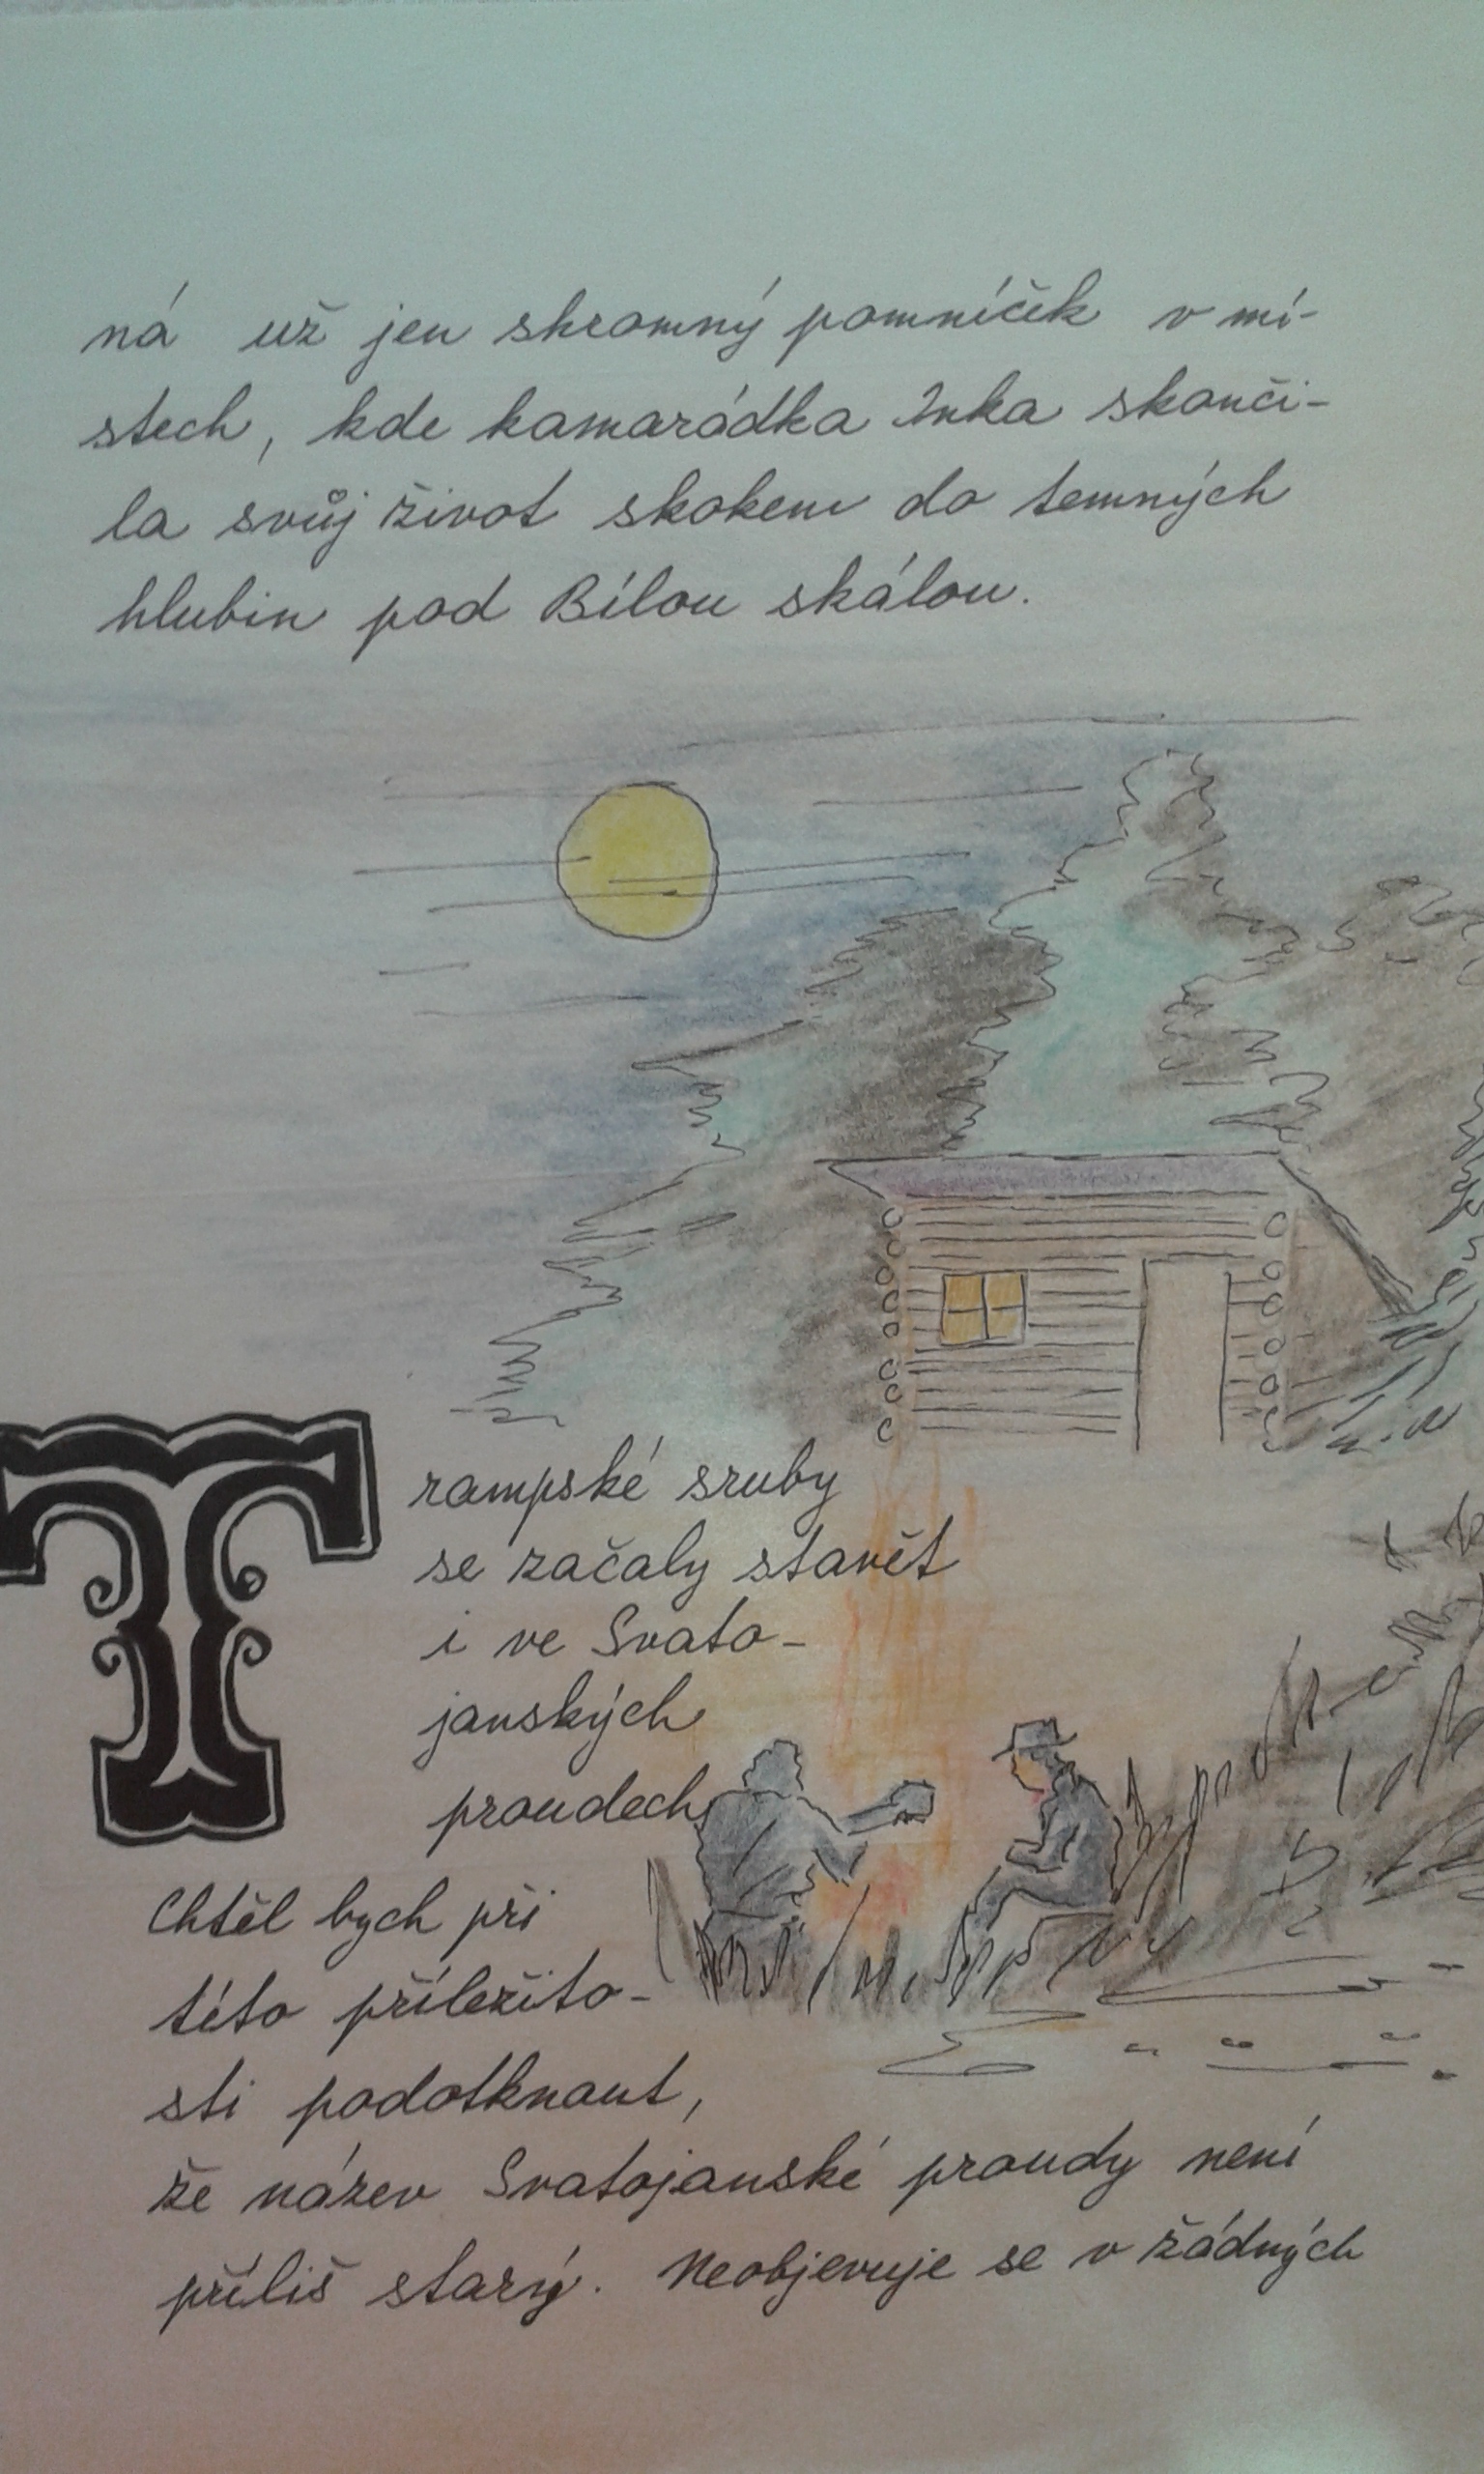 ná už jen skromný pomníček v mí-
stech, kde kamarádka Inka skonči-
la svůj život skokem do temných
hlubin pod Bílou skálou.
Trampské sruby
se začaly stavět
i ve Svato-
janských
proudech
Chtěl bych při
této příležito-
sti podotknout,
že název Svatojanské proudy není
příliš starý. Neobjevuje se v žádných